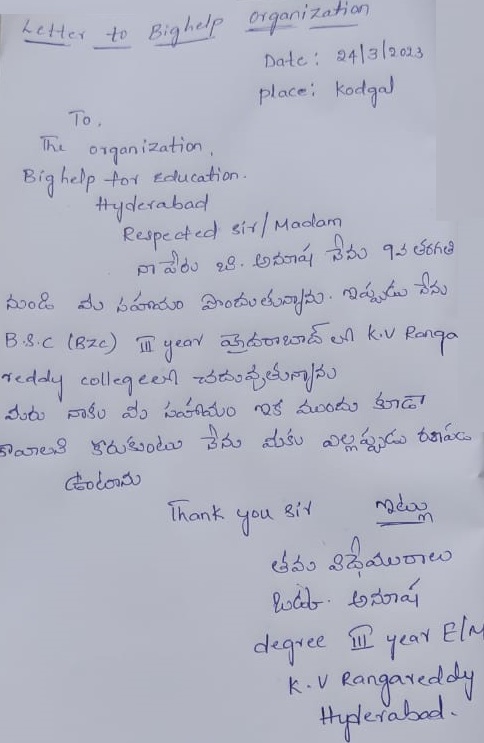 Letter to Bighelp organization
Date: 24/3/2023
place: kodgal
To,
The organization,
Bighelp for Education.
Hyderabad
Respected sir/Madam
నా పేరు బి. అనూష నేను 9వ తరగతి
నుండి మీ సహాయం పొందుతున్నాను. ఇప్పుడు నేను
B.S.C (BZC) III year హైదరాబాద్ లోని K.V Ranga
reddy collegeలోని చదువుతున్నాను
మీరు నాకు మీ సహాయం ఇక ముందు కూడా
కావాలని కోరుకుంటు నేను మీకు ఎల్లప్పుడు
ఉంటాను
Thank you sir ఇట్లు
తమ విధేయురాలు
అనూష
degree III year E/M
K.V Rangareddy
Hyderabad.